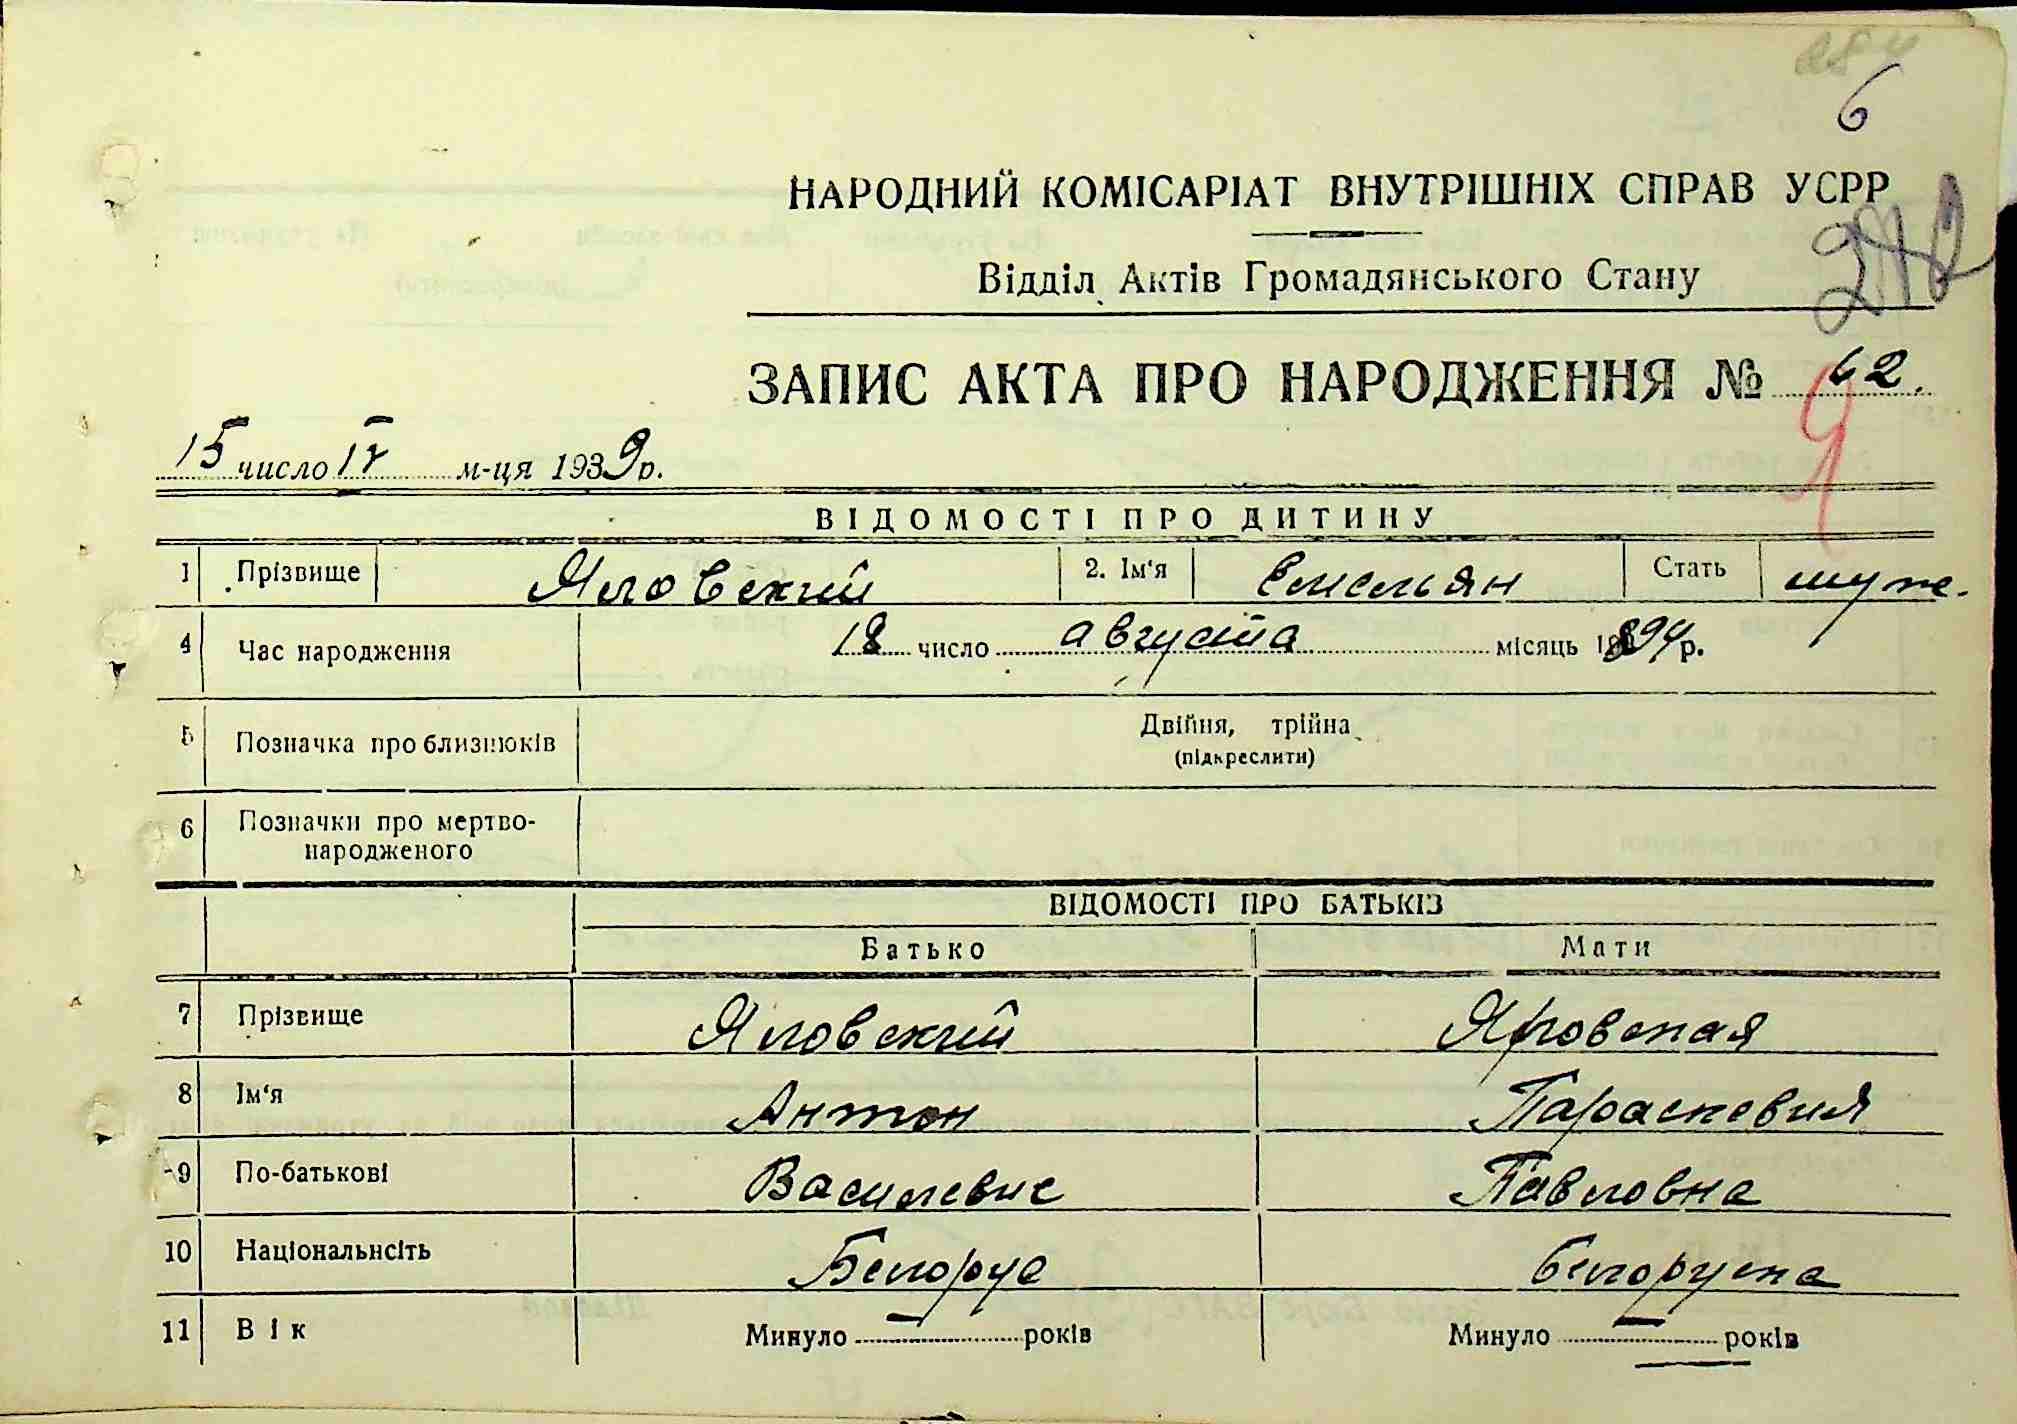 6
НАРОДНИЙ КОМІСАРІАТ ВНУТРІШНІХ СПРАВ УСРР
Відділ Актів Громадянського Стану
ЗАПИС АКТА ПРО НАРОДЖЕННЯ № 62.
Я
15 число IV м-ця 1939 р.
ВІДОМОСТІ ПРО ДИТИНУ
1 Прізвище Яловский 2. Ім'я Емельян Стать муж.
4 Час народження 18 число августа місяць 1894 р.
5 Позначка про близнюків Двійня, трійна
(підкреслити)
6 Позначки про мертво-
народженого
ВІДОМОСТІ ПРО БАТЬКІВ
Батько Мати
7 Прізвище Яловский Яловская
8 Ім'я Антон Параскевия
9 По-батькові Василевич Павловна
10 Національнсіть Белорус Белоруска
11 Вік Минуло — років Минуло — років